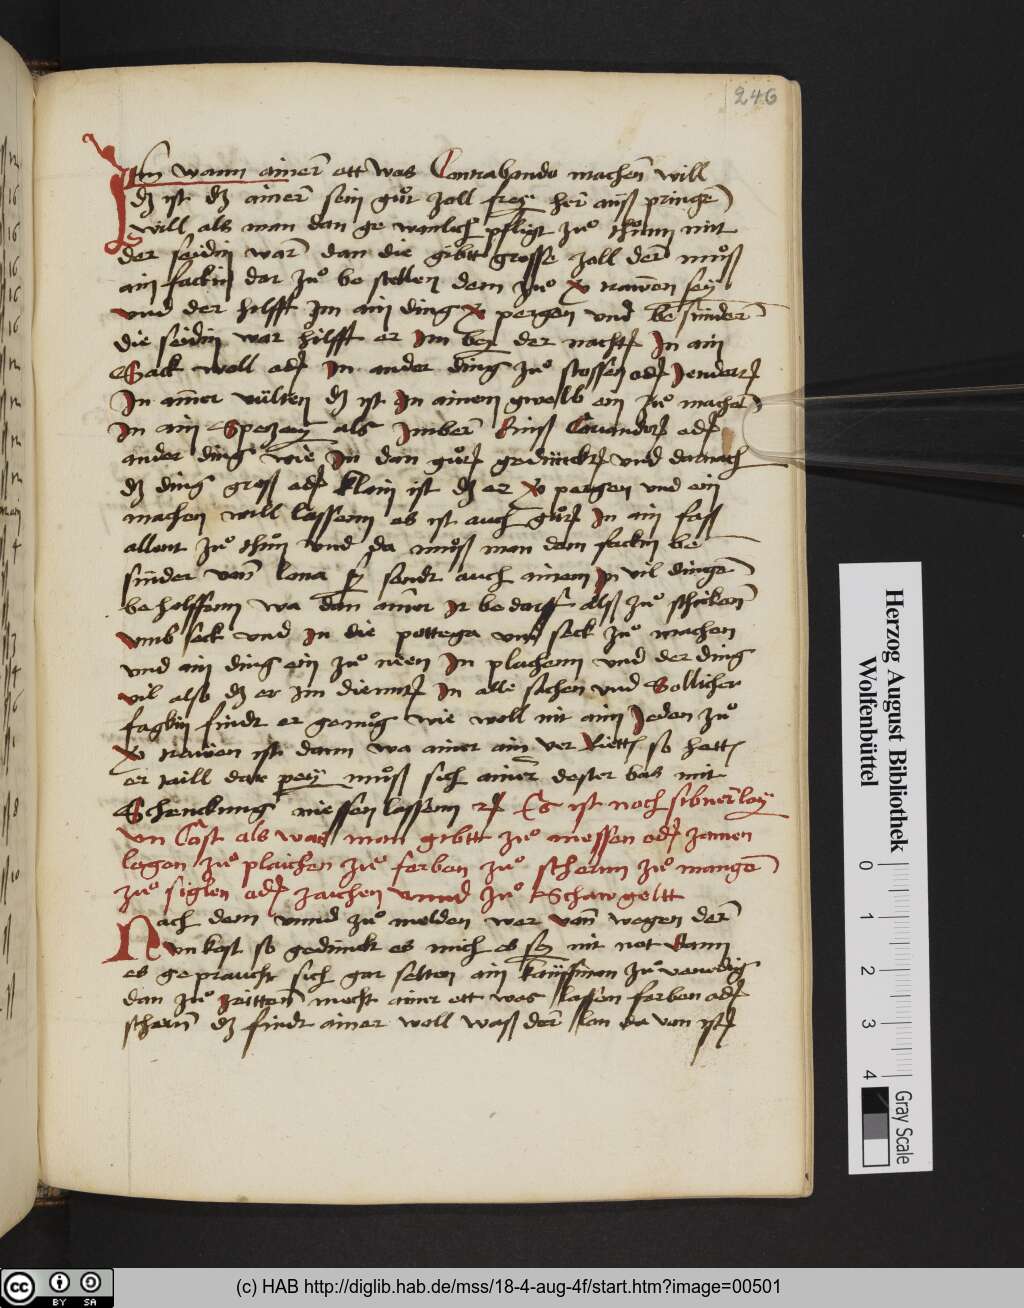 246
Itm wann ainer ett was Contrabando machen will
dz ist dz ainer sein gůt zoll frey her auß pringen
will als man dan ge wonlich pfligt zuͦ thůnn mit
der seidin war dan die gibtt grosse zoll der muͦß
ain fackin dar zuͦ be stellen dem zuͦ trawen sey
und der hilfft im ain ding pergen und be sunder
die seidin war hilfft er Im bey der nacht In ain
Sack woll oder In ander ding zuͦ stossen oder
In ainer ist In ainen gwelb ein zuͦ machen
In ain Spezery als Imber oder
ander ding wie In dan guͦt geduncktt und darnach
dz ding groß oder klain ist dz er pergen und ein
machen will lassenn es ist auch guͦt In ain faß
allent zuͦ thůn und da muͦß man dem fackin be
sunder von auch ainem In vil dingen
be holffenn wa dan ainer Ir be darff alß zuͦ schicken
umb seck und In die pottega und seck zuͦ machen
und ain ding ein zuͦ neen In plachenn und der ding
vil also dz er im diennt In alle sachen und Sollicher
fagkin findt er genuͦg wie woll nit aim Jeden zuͦ
trawen ist dann wa ainer ain ver so hett
er taill dar pey muͦß sich ainer dester bas mit
Schenckung niessen lassenn Es ist noch sibnerlay
un Cost als was man gibtt zuͦ messen oder zamen
legen zuͦ plaichen zuͦ ferben zuͦ schernn zuͦ mangen
zuͦ siglen oder zaichen unnd zuͦ Schawgeltt
Nach dem unnd zuͦ melden wer von wegen der
unkost so gedunckt es mich es sey nit not dann
es ge praucht sich gar selten ain kauffman zuͦ venedig
dan zuͦ zritten mecht ainer ett was lassen ferben oder
schern dz findt ainer woll waß der lon da von ist
Herzog August Bibliothek
Wolfenbüttel
0 1 2 3 4
Gray Scale
BY SA
(c) HAB http://diglib.hab.de/mss/18-4-aug-4f/start.htm?image=00501